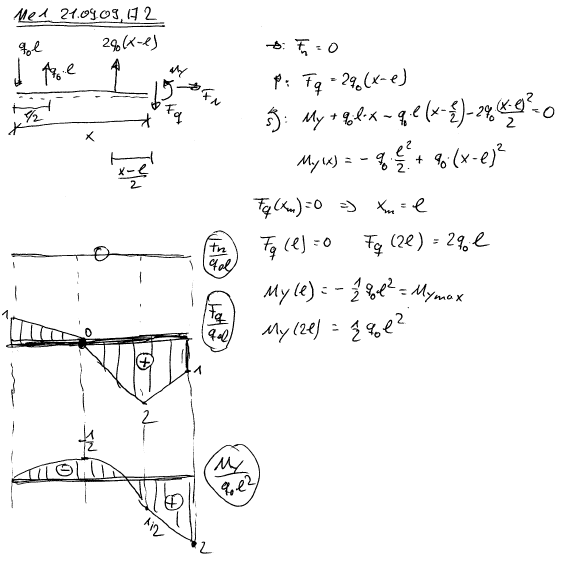 Me1 21.09.09, 172
q₀l
q₀·l
2q₀(x-l)
My
Fn
Fq
l/2
x
(x-l)/2
→: Fn = 0
↑: Fq = 2q₀(x-l)
S): My + q₀l·x - q₀·l(x-l/2) - 2q₀(x-l)²/2 = 0
My(x) = -q₀·l²/2 + q₀·(x-l)²
Fq(xm)=0 ⇒ xm = l
Fq(l)=0 Fq(2l) = 2q₀·l
My(l) = -1/2 q₀l² = Mymax
My(2l) = 1/2 q₀l²
0
Fn/q₀l
1
0
Fq/q₀l
+
1
2
-1/2
-
My/q₀·l²
+
1/2
2